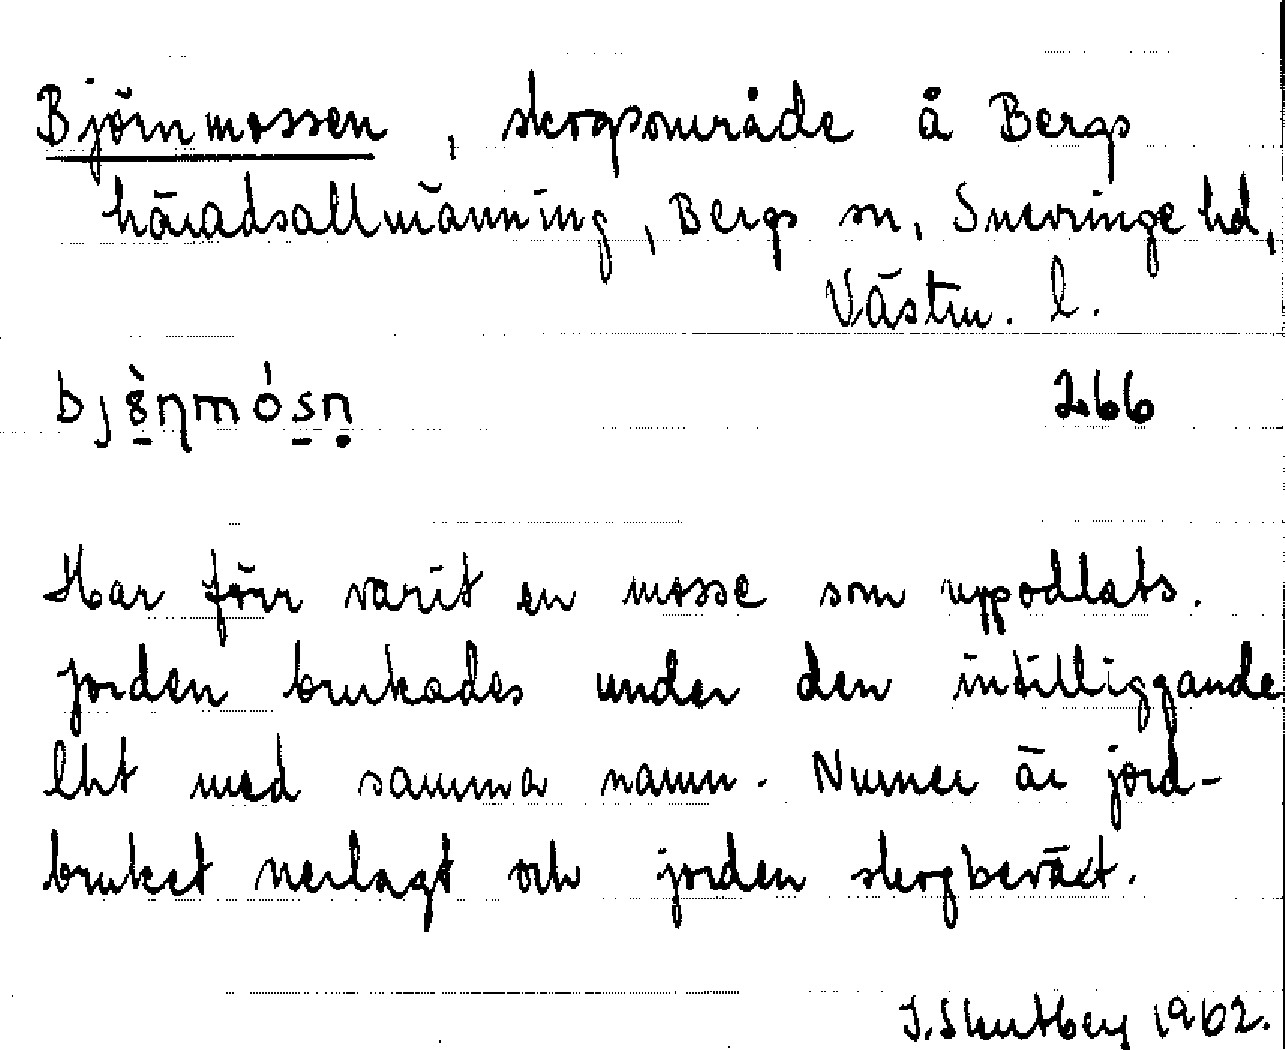 Björnmossen, skogsområde å Bergs
häradsallmänning, Bergs sn, Snevringe hd,
Västm. l.
bjö̀ṇmósṇ 266
Har förr varit en mosse som uppodlats.
Jorden brukades under den intilliggande
lht med samma namn. Numer är jord-
bruket nerlagt och jorden skogbeväxt.
1962.